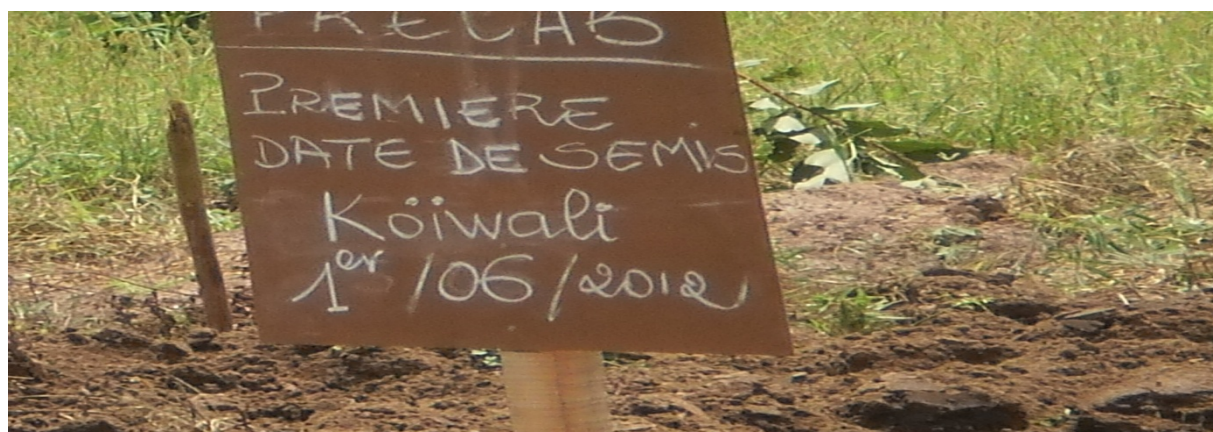 PRECAB
PREMIERE
DATE DE SEMIS
Köiwali
1er/06/2012